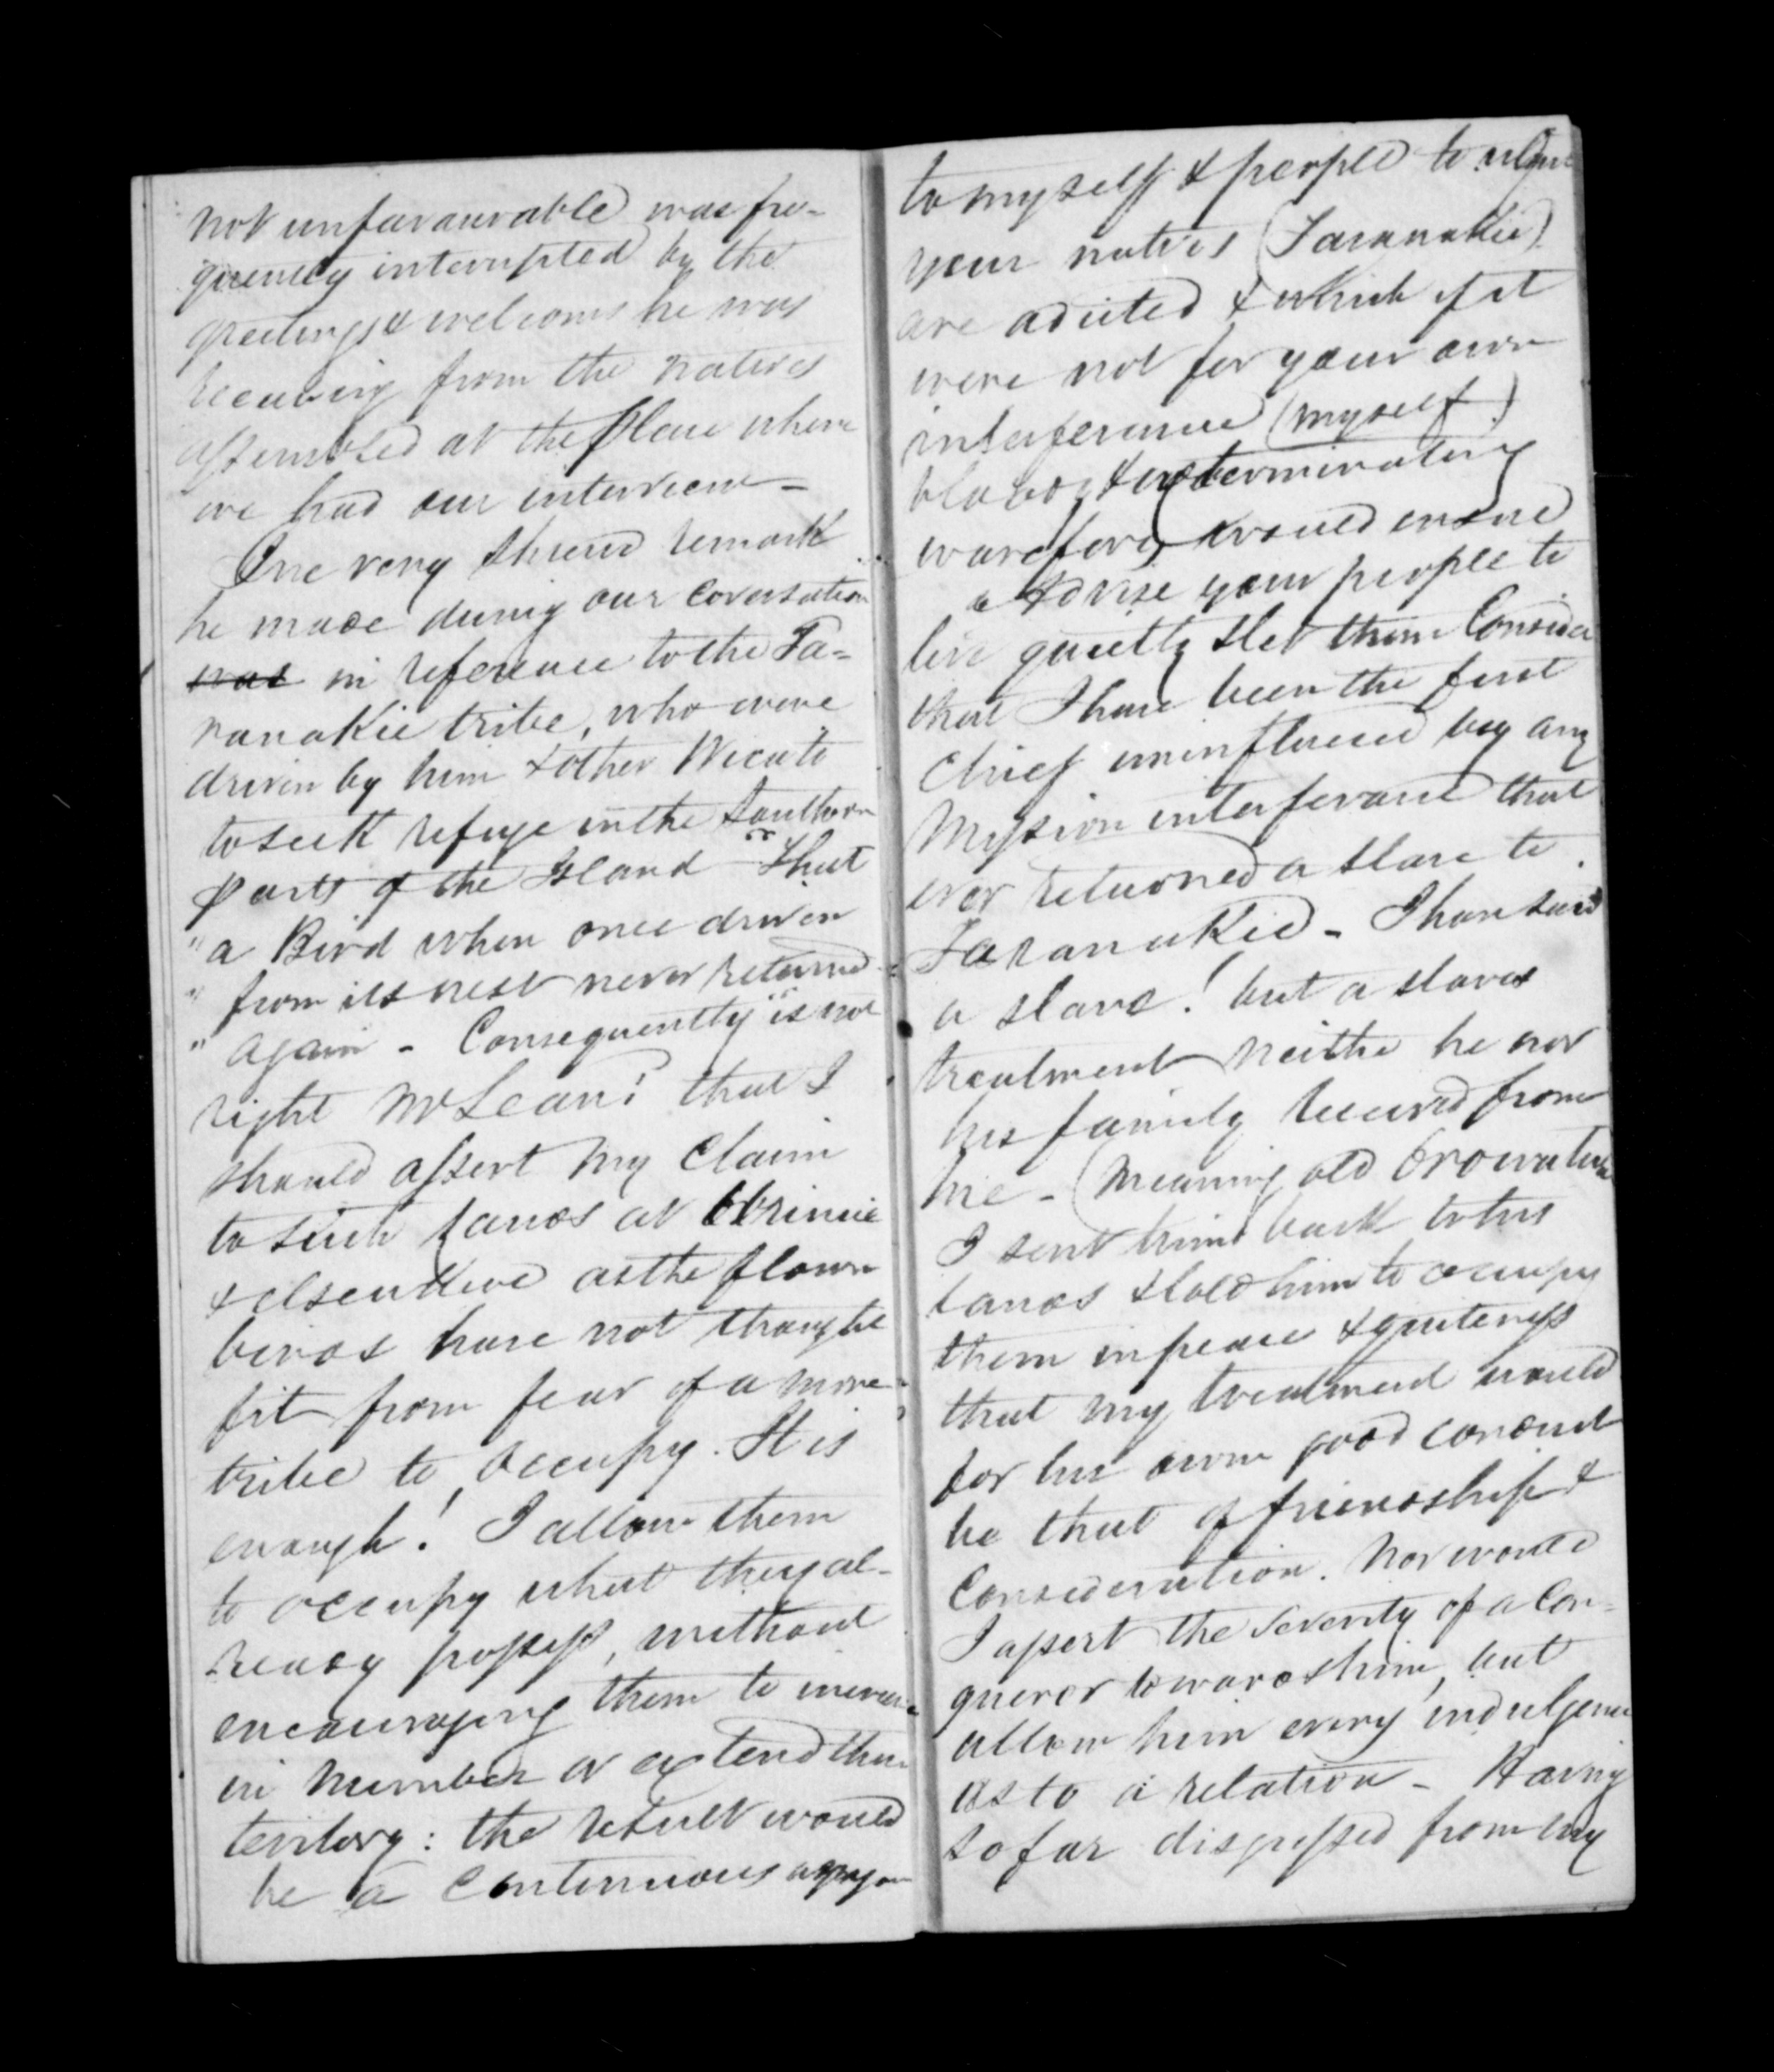 not unfavourable was fre-
quently interupted by the
greetings & welcoms he was
receiving from the natives
assembled at the place where
we had our interview -
One very shrewd remark
he made durnig our coversation
was in reference to the Ta-
ranakie tribe, who were
driven by him & other Wicato
to seek refuge in the Southern
parts of the Island "That
" a Bird when once driven
" from its nest never returned
" again - Consequently "is not
right McLean? that I
should assert my claim
to such lands at
& elsewhere as the flown
birds have not thought
fit from fear of a more
tribe to occupy. It is
enough! I allow them
to occupy what they al-
ready possess, without
encouraging them to increase
in number or extend their
teritory: the result would
be a continuous
to myself & people to
your natives (Taranakie)
are adicted & which if it
were not for your own
interference (myself)
bloody & exterminating
warefore would ensue
advise your people to
live quietly & let them Consider
that I have been the first
chief uninfluenced by any
Mission interferance that
ever returned a slave to
Taranakie - I have said
a slave! but a slaves
treatment neither he nor
his family received from
me - (meaning old
I sent him back to his
lands & told him to occupy
them in peace & quiteness
that my treatment would
for his own good conduct
be that of friendship &
Consideration. Nor would
I assert the severity of a Con-
queror towards him, but
allow him every indulgence
as to a relation - Having
so far disgressed from my